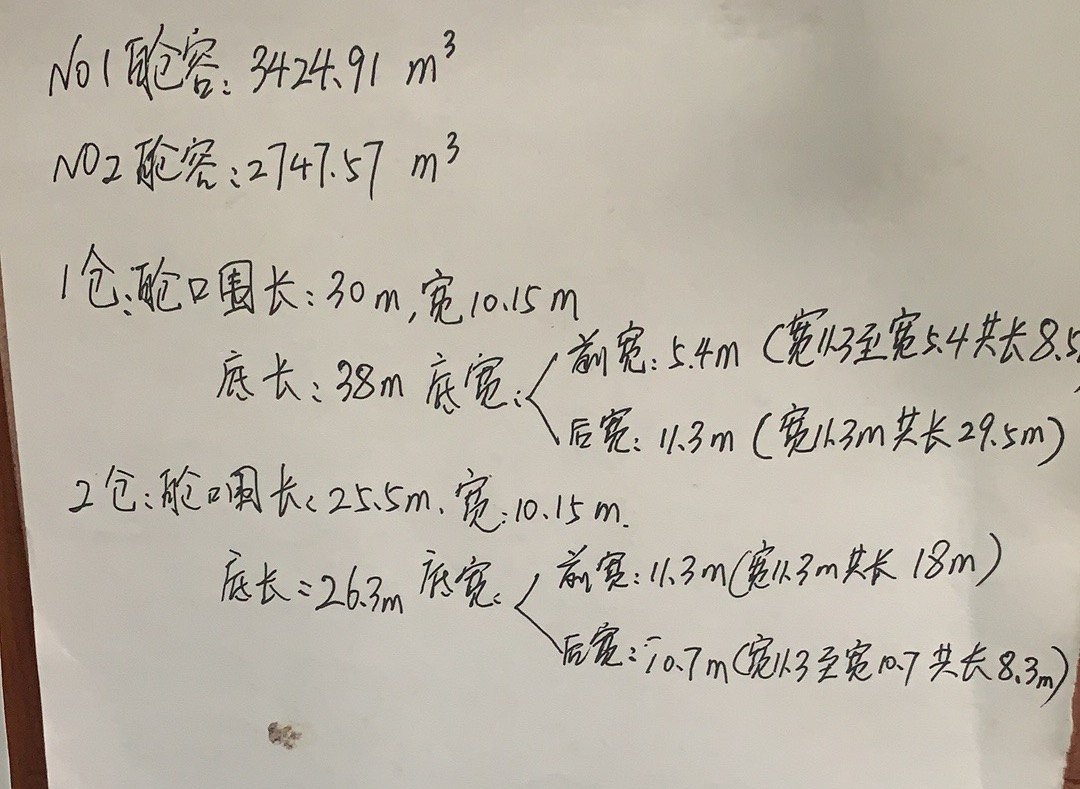 NO1舱容:3424.91 m³
NO2舱容:2747.57 m³
1仓:舱口围长:30m,宽10.15m
底长:38m 底宽:
前宽:5.4m (宽11.3至宽5.4共长8.5
后宽:11.3m (宽11.3m共长29.5m)
2仓:舱口围长:25.5m.宽:10.15m.
底长:26.3m 底宽:
前宽:11.3m(宽11.3m共长 18m)
后宽:10.7m(宽11.3至宽10.7共长8.3m)